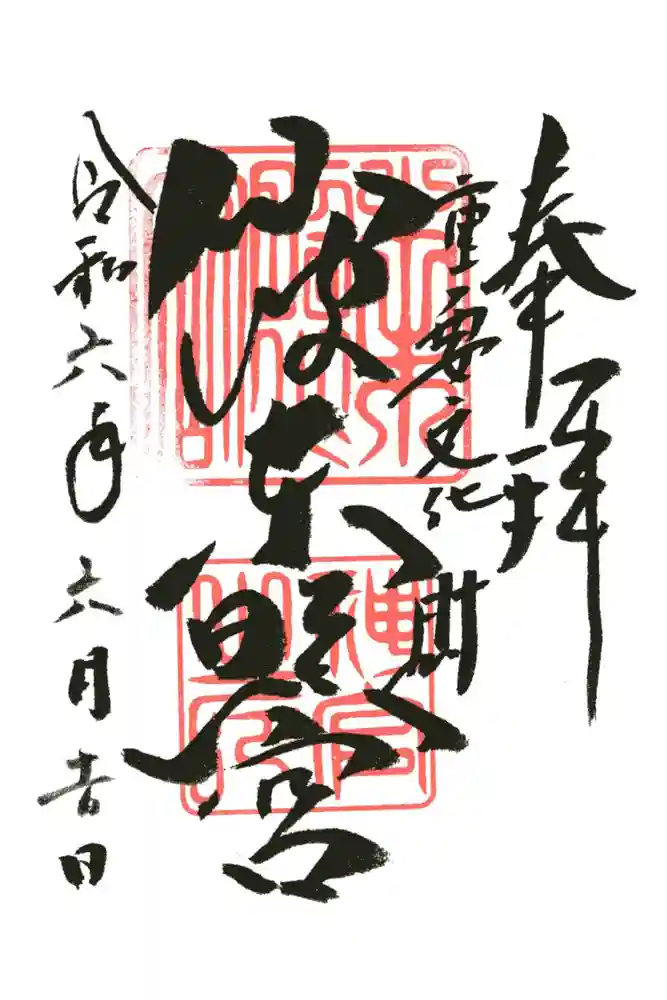 奉拝
重要文化財
仙波東照宮
令和六年六月吉日